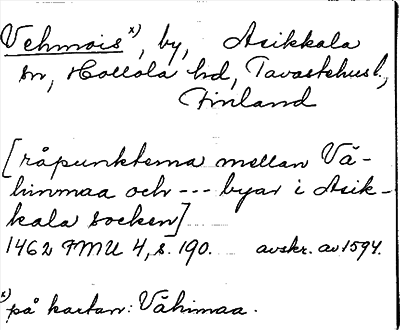 Vehmois x), by, Asikkala
sn, Hollola hd, Tavastehus l.,
Finland
[råpunkterna mellan Vä-
hinmaa och --- byar i Asik-
kala socken]
1462 FMU 4, s. 190. avskr. av 1594.
x) på kartan: Vähimaa.